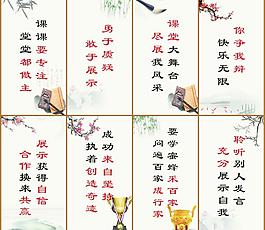 课课要专注
堂堂都做主
勇于质疑
敢于展示
课堂大舞台
尽展我风采
你争我辩
快乐无限
展示获得自信
合作换来共赢
成功来自坚持
执着创造奇迹
要学蜜蜂采百家
问遍百家成行家
聆听别人发言
充分展示自我